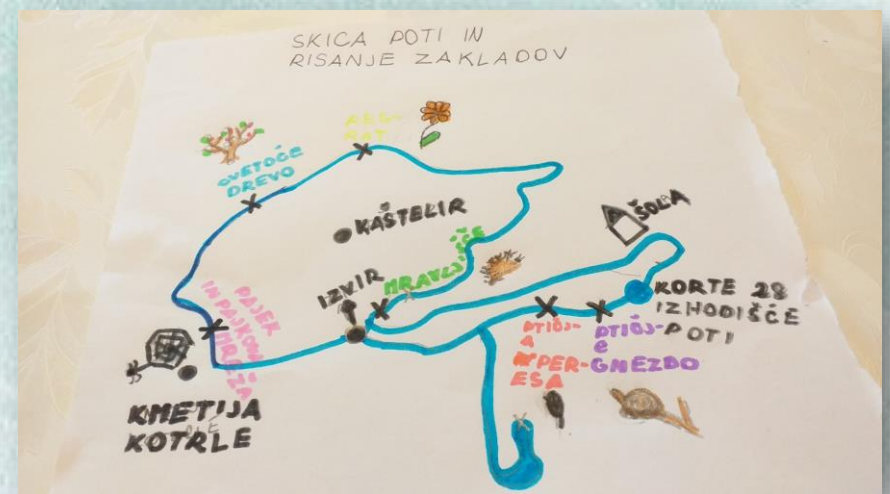 SKICA POTI IN
RISANJE ZAKLADOV
REG-
RAT
CVETOČE
DREVO
KAŠTELIR
ŠOLA
MRAVLJIŠČE
IZVIR
PAJEK
IN PAJKOVA
MREŽA
KORTE 28
IZHODIŠČE
POTI
PTIČJ-
A
PER-
ESA
PTIČJ-
E
GNEZDO
KMETIJA
KOTRLE